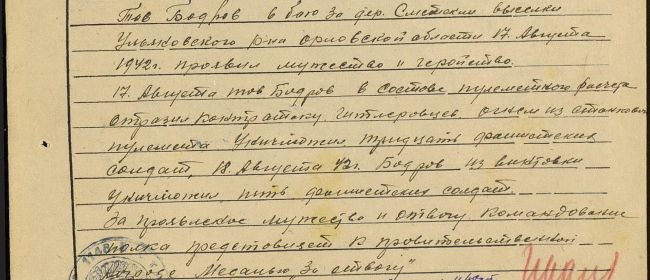 Тов Бодров в бою за дер. Сметские выселки
Ульяновского р-на Орловской области 17. Августа
1942г. проявил мужество и геройство.
17. Августа тов Бодров в составе пулеметного расчета
отразил контратаку гитлеровцев, огнем из станкового
пулемета уничтожил тридцать фашистских
солдат, 18. Августа 42г. Бодров из винтовки
уничтожил пять фашистских солдат.
За проявлское мужество и отвагу командование
полка предстовляет к провительственной
награде Медалью "За отвагу"